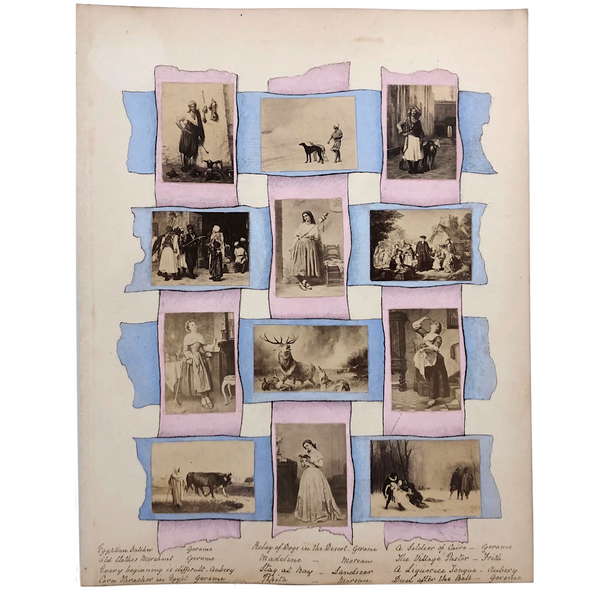 Egyptian Butcher Gerome
Old Clothes Merchant Gerome
Every beginning is difficult. Aubery
Corn Thrasher in Egypt Gerome
Relay of Dogs in the Desert. Gerome
Madeline — Moreau
Stag at Bay — Landseer
Moreau
A Soldier of Cairo — Gerome
The Village Pastor — Frith
A Liquorice Tongue — Aubery
Duel after the Ball — Gerome